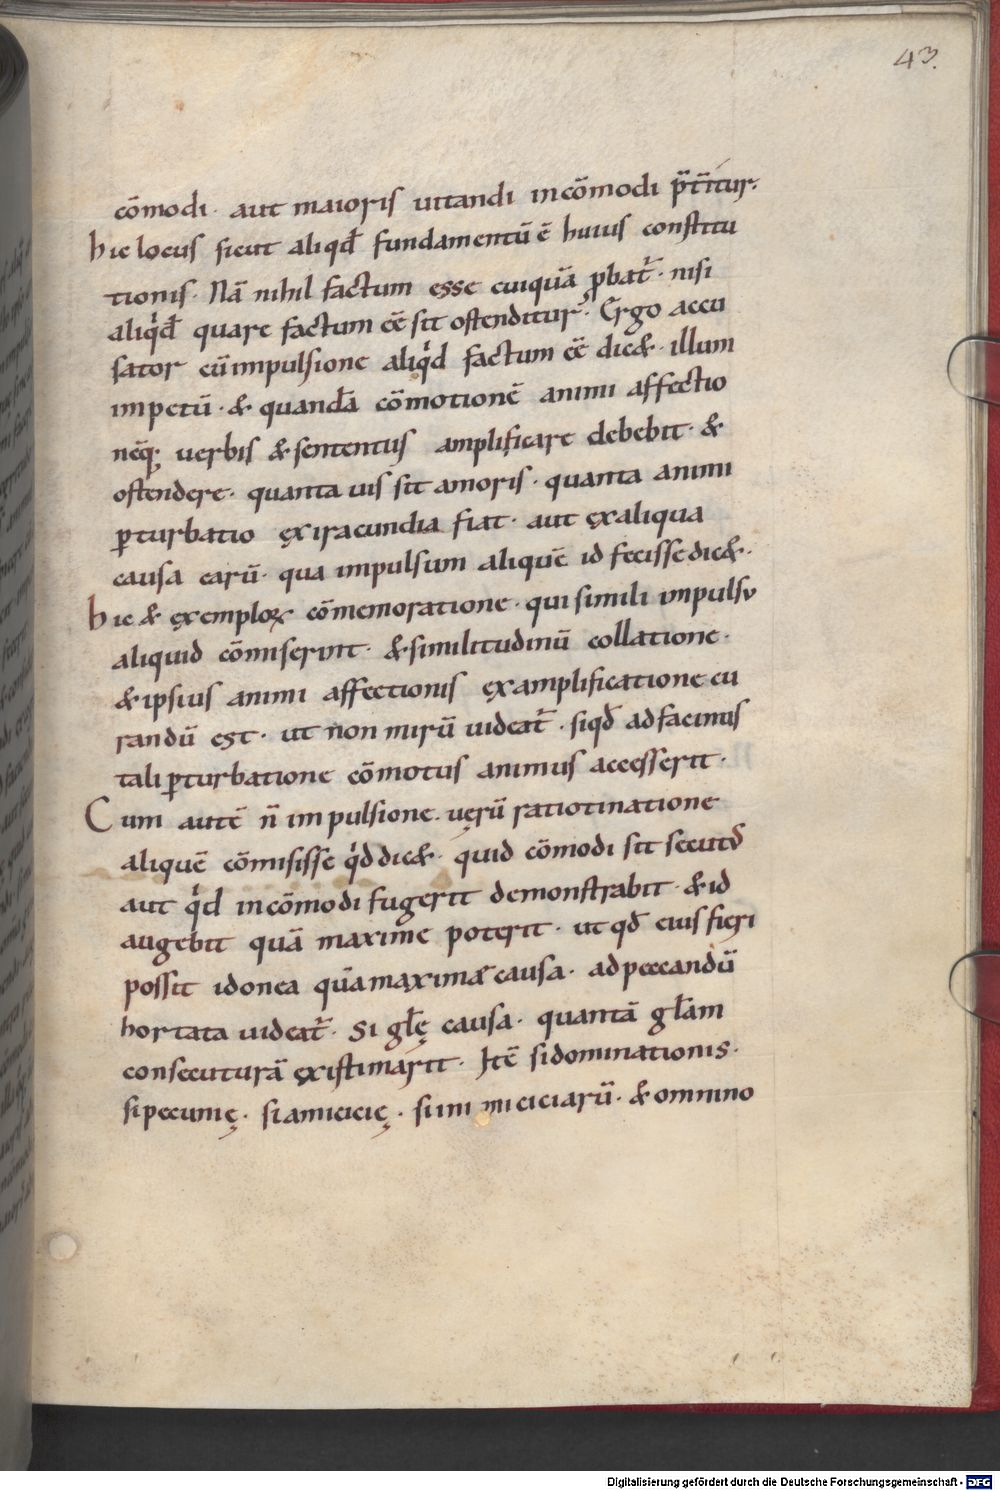 43.
cōmodi · aut maioris uitandi incōmodi p̄t̄itur·
hic locus sicut aliqđ fundamentū ē huius constitu
tionis · Nā nihil factum esse cuiquā ꝓbat̄ · nisi
aliqͥđ quare factum eē sit ostenditur · Ergo accu
sator cū impulsione aliqͥd factum eē dic& · illum
impetū · & quandā cōmotionē animi affectio
nēq; uerbis & sententiis amplificare debebit · &
ostendere · quanta uis sit amoris · quanta animi
ꝑturbatio ęx iracundia fiat · aut ęx aliqua
causa earū · qua impulsum aliquē id fecisse dic& ·
hic & ęxemploꝝ cōmemoratione · qui simili impulsu
aliquid cōmiserint · & similitudinū collatione ·
& ipsius animi affectionis ęxamplificatione cu
randū est · ut non mirū uideat̄ · siqđ ad facinus
tali ꝑturbatione cōmotus animus accesserit ·
Cum autē n̄ impulsione · uęrū ratiotinatione
aliquē cōmisisse qͥd dic& · quid cōmodi sit secutꝰ
aut qͥd incōmodi fugerit demonstrabit · & id
augebit quā maxime poterit · ut qđ eius fieri
possit idonea quā maximæ causa · ad peccandū
hortata uideat̄ · Si gƚę causa · quantā gƚam
consecuturā ęxistimarit · Itē si dominationis ·
si pecunię · si amicicię · si inimiciciarū · & omnino
Digitalisierung gefördert durch die Deutsche Forschungsgemeinschaft - DFG